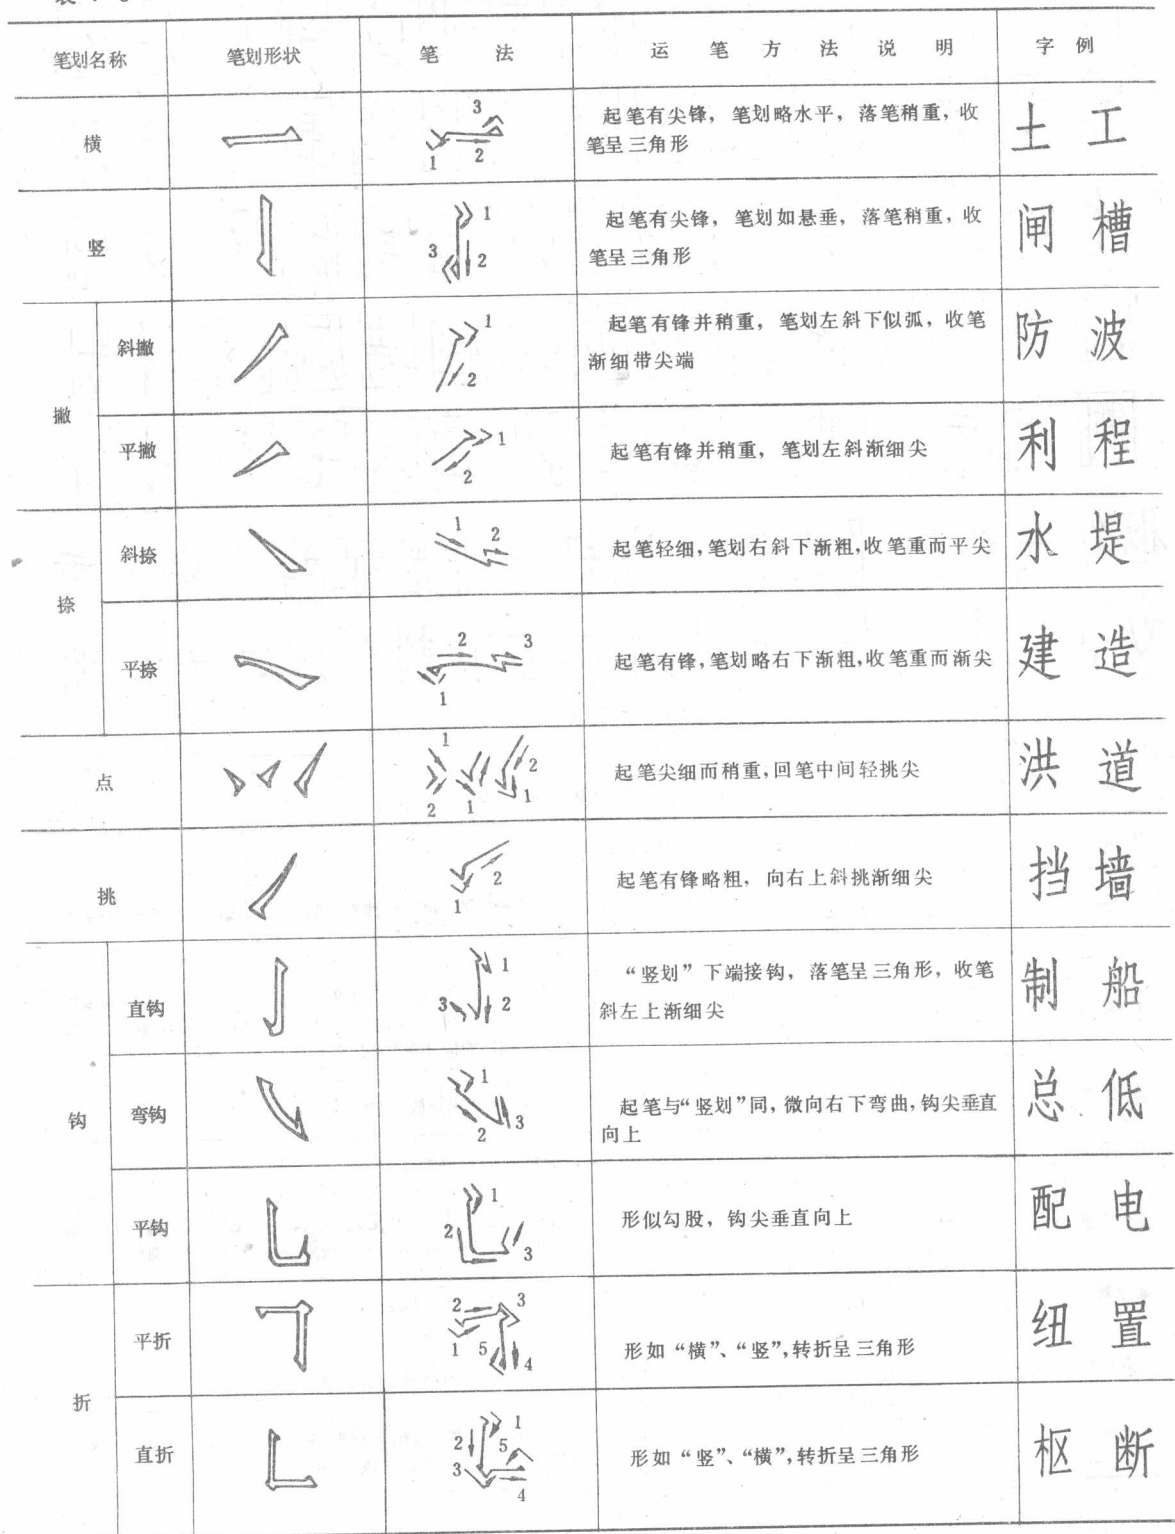 笔划名称 笔划形状 笔 法 运 笔 方 法 说 明 字 例
横 3 1 2 起笔有尖锋，笔划略水平，落笔稍重，收 土 工
笔呈三角形
竖 1 3 2 起笔有尖锋，笔划如悬垂，落笔稍重，收 闸 槽
笔呈三角形
撇 斜撇 1 2 起笔有锋并稍重，笔划左斜下似弧，收笔 防 波
渐细带尖端
平撇 1 2 起笔有锋并稍重，笔划左斜渐细尖 利 程
捺 斜捺 1 2 起笔轻细，笔划右斜下渐粗，收笔重而平尖 水 堤
平捺 2 3 1 起笔有锋，笔划略右下渐粗，收笔重而渐尖 建 造
点 1 2 2 1 1 起笔尖细而稍重，回笔中间轻挑尖 洪 道
挑 2 1 起笔有锋略粗，向右上斜挑渐细尖 挡 墙
钩 直钩 1 3 2 “竖划”下端接钩，落笔呈三角形，收笔 制 船
斜左上渐细尖
弯钩 1 2 3 起笔与“竖划”同，微向右下弯曲，钩尖垂直 总 低
向上
平钩 1 2 3 形似勾股，钩尖垂直向上 配 电
折 平折 2 3 1 5 4 形如“横”、“竖”，转折呈三角形 纽 置
直折 1 2 5 3 4 形如“竖”、“横”，转折呈三角形 枢 断